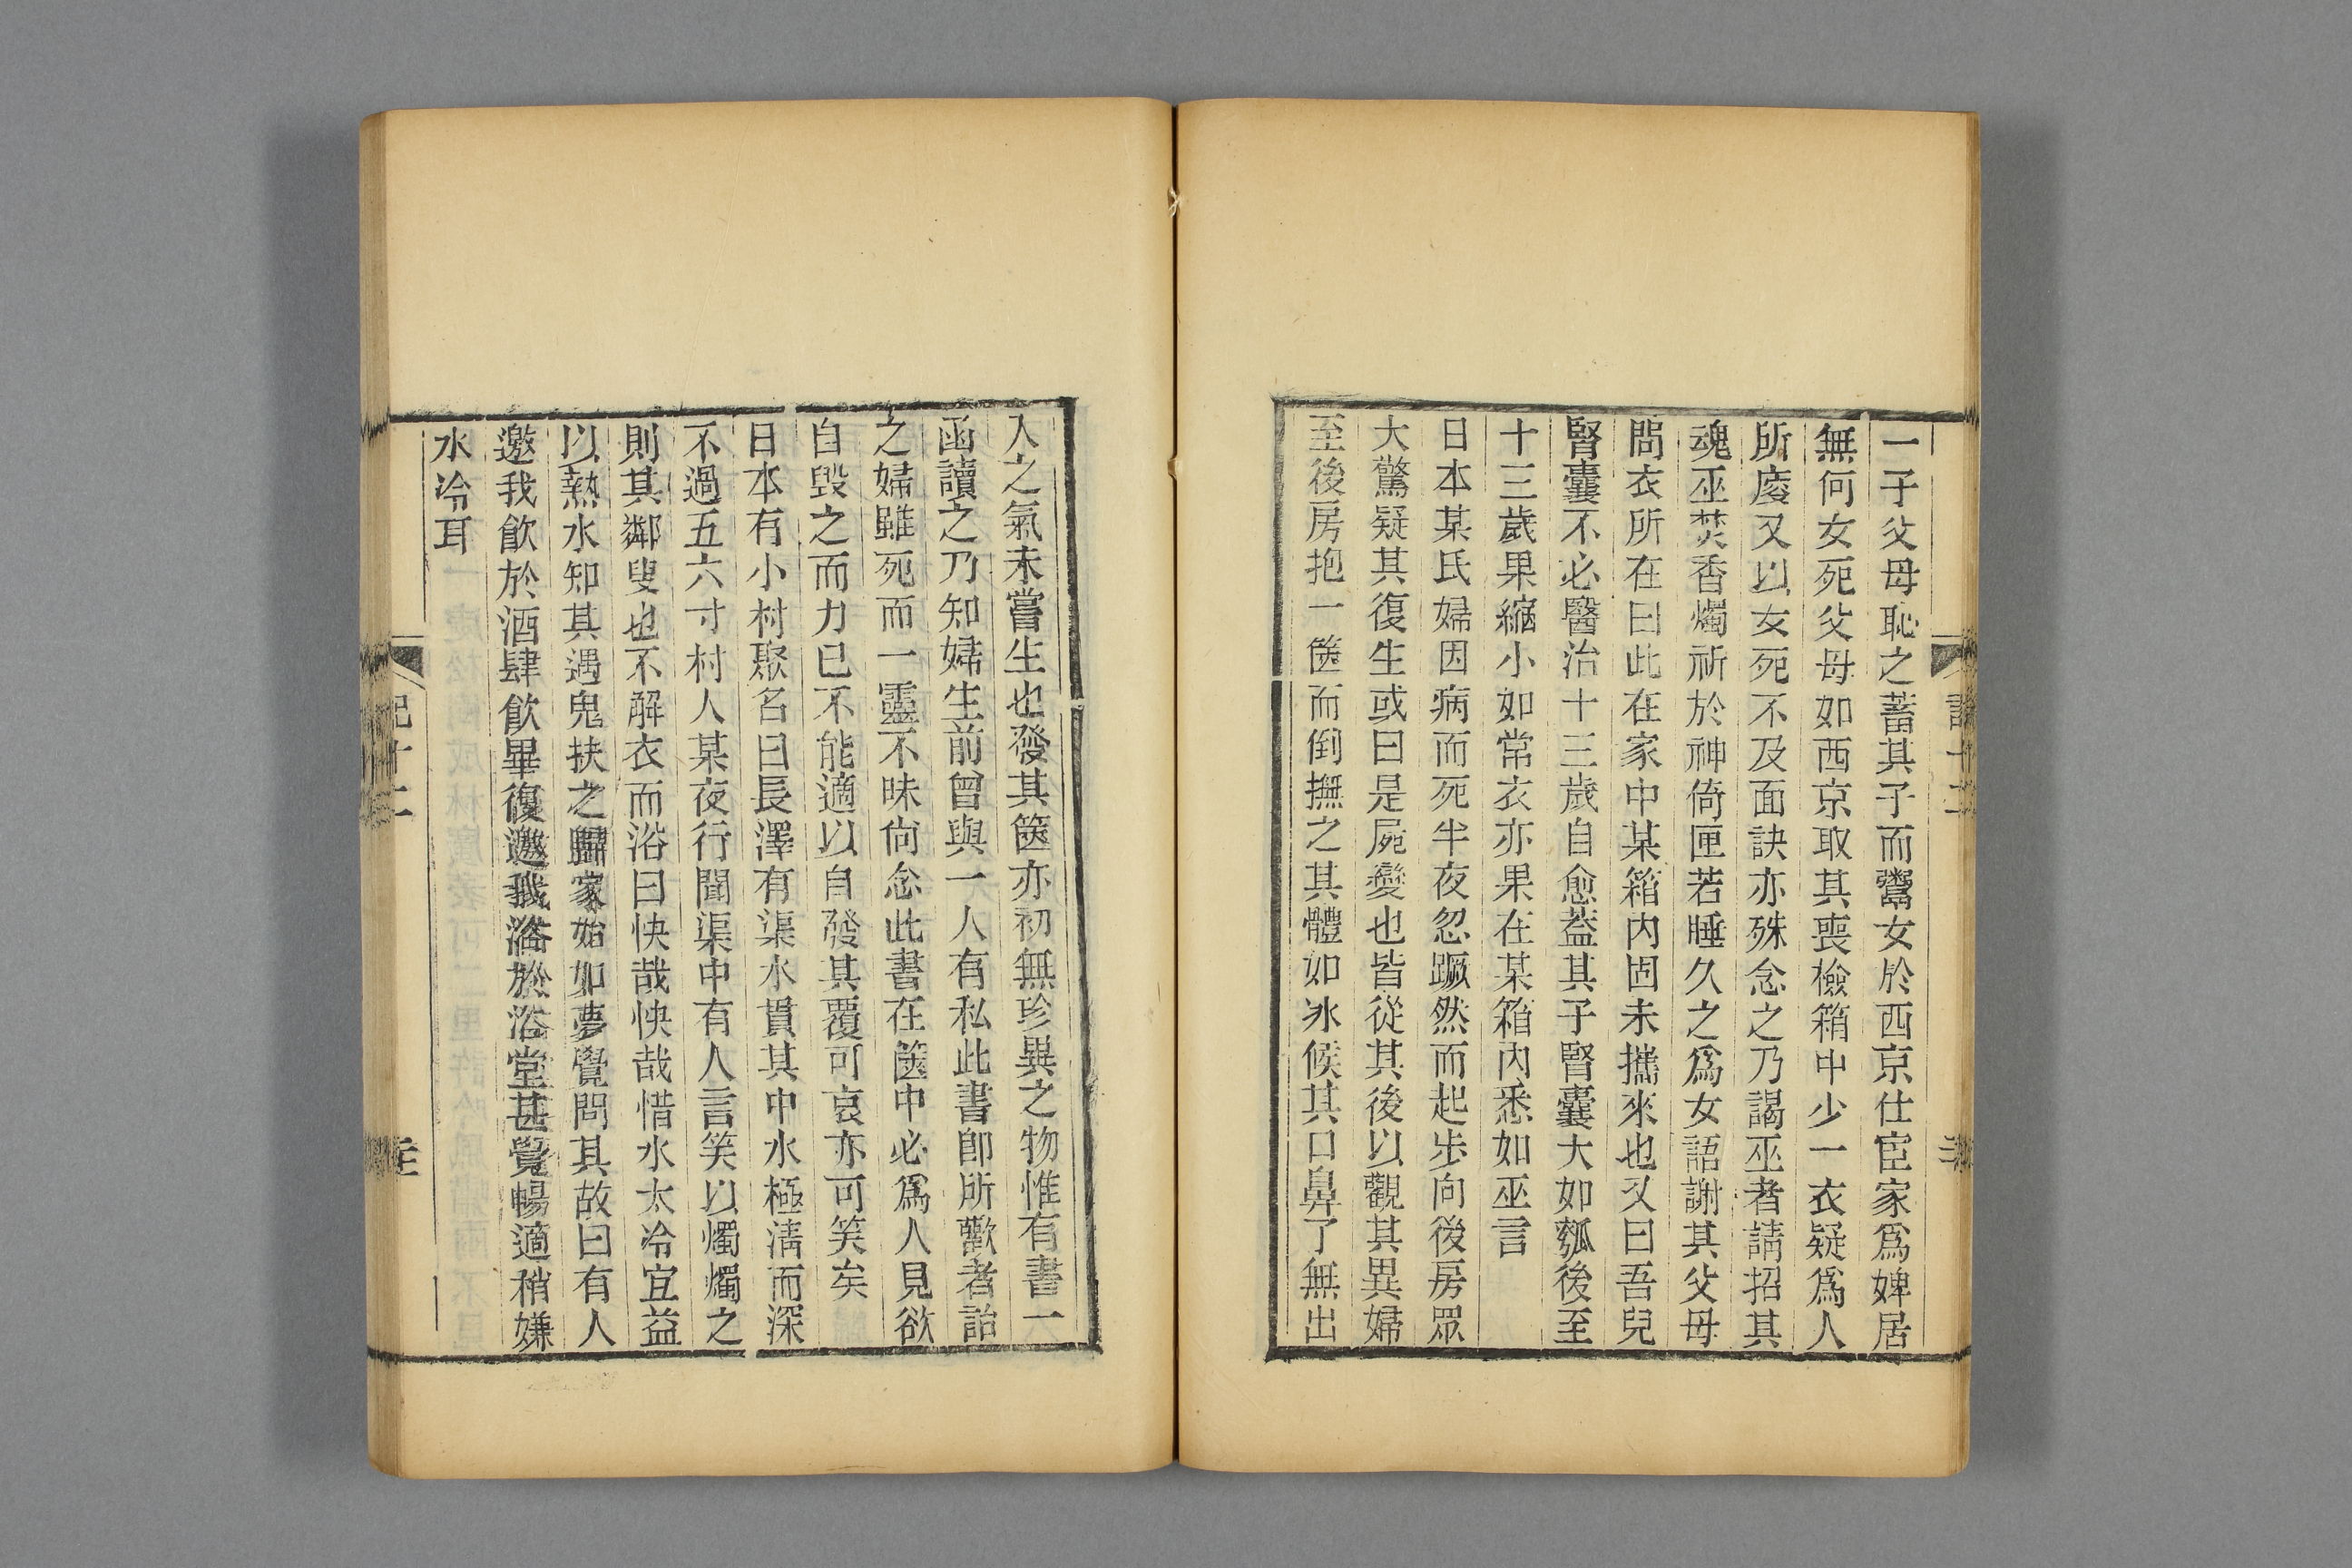 一子父母恥之蓄其子而鬻女於西京仕宦家爲婢居
無何女死父母如西京取其喪檢箱中少一衣疑爲人
所廋又以女死不及面訣亦殊念之乃謁巫者請招其
魂巫焚香燭祈於神倚匣若睡久之爲女語謝其父母
問衣所在曰此在家中某箱內固未攜來也又曰吾兒
腎囊不必醫治十三歲自愈葢其子腎囊大如瓠後至
十三歲果縮小如常衣亦果在某箱內悉如巫言
日本某氏婦因病而死半夜忽蹶然而起步向後房眾
大驚疑其復生或曰是屍變也皆從其後以觀其異婦
至後房抱一篋而倒撫之其體如冰候其口鼻了無出
入之氣未嘗生也發其篋亦初無珍異之物惟有書一
函讀之乃知婦生前曾與一人有私此書卽所歡者詒
之婦雖死而一靈不昧尙念此書在篋中必爲人見欲
自毀之而力已不能適以自發其覆可哀亦可笑矣
日本有小村聚名曰長澤有渠水貫其中水極淸而深
不過五六寸村人某夜行聞渠中有人言笑以燭燭之
則其鄰叟也不解衣而浴曰快哉快哉惜水太冷宜益
以熱水知其遇鬼扶之歸家始如夢覺問其故曰有人
邀我飮於酒肆飮畢復邀我浴於浴堂甚覺暢適稍嫌
水冷耳